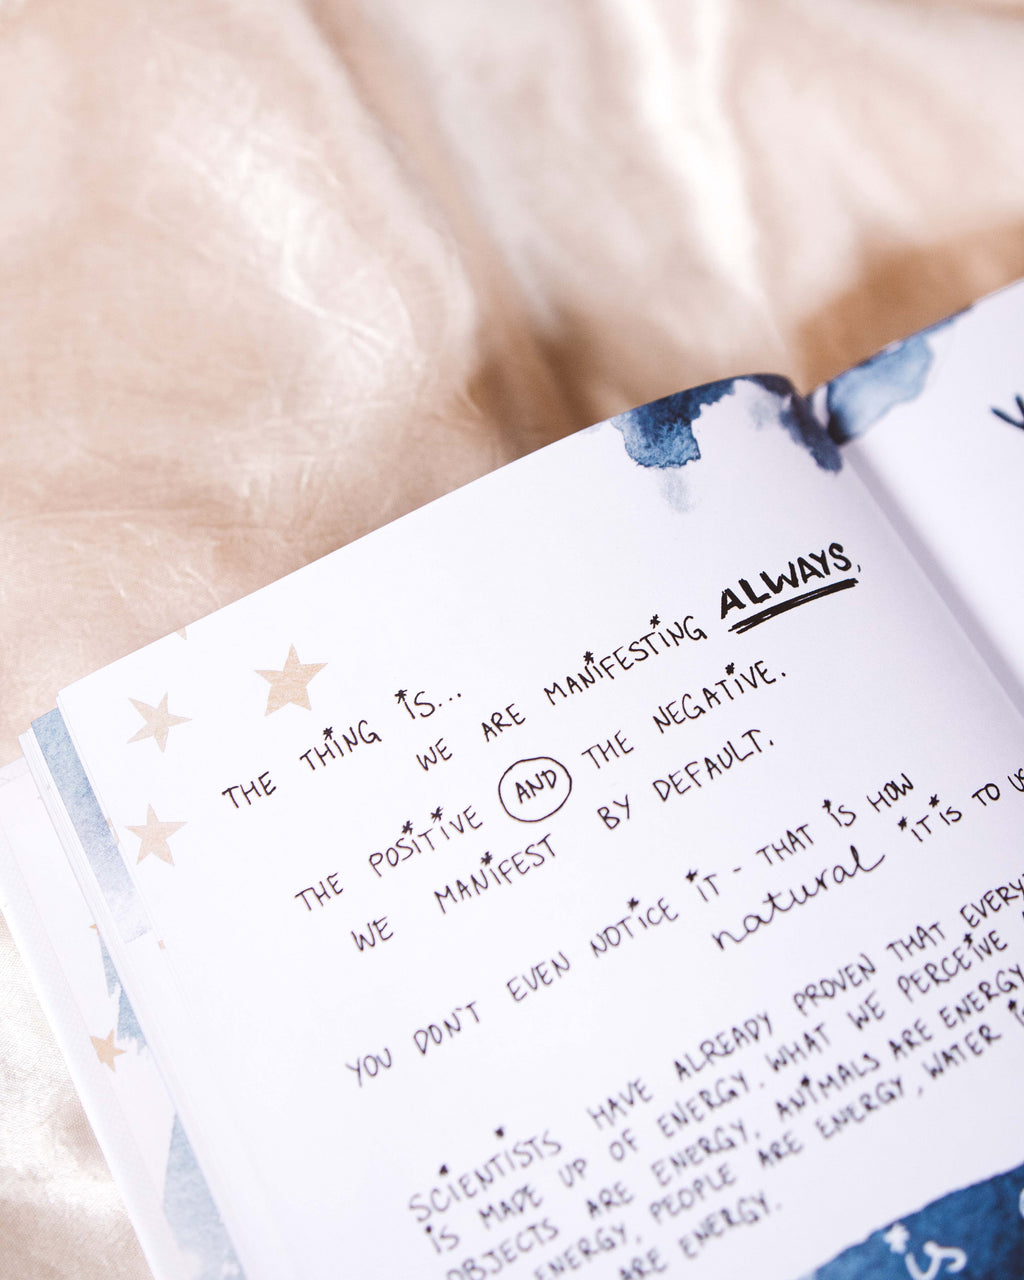 THE THING IS...
WE ARE MANIFESTING ALWAYS,
THE POSITIVE AND THE NEGATIVE.
WE MANIFEST BY DEFAULT.
YOU DON'T EVEN NOTICE IT - THAT IS HOW
natural IT IS TO US
SCIENTISTS HAVE ALREADY PROVEN THAT
IS MADE UP OF ENERGY. WHAT WE PERCEIVE
OBJECTS ARE ENERGY, ANIMALS ARE ENERGY
ENERGY, PEOPLE ARE ENERGY, WATER
ARE ENERGY.
is